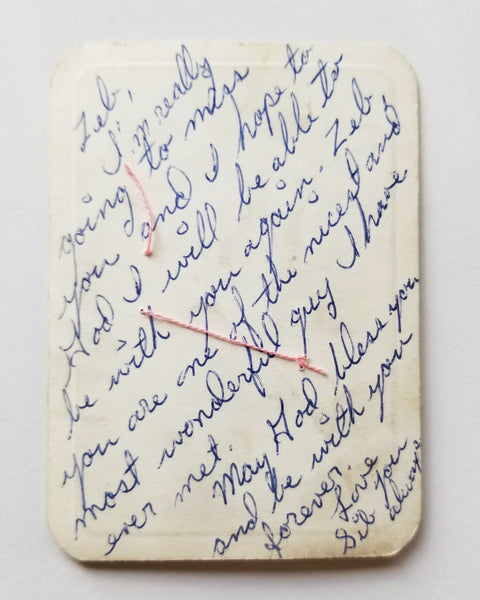 Zeb,
I'm really
going to miss
you and I hope to
God I will be able to
be with you again. Zeb,
you are one of the nicest and
most wonderful guy I have
ever met. May God bless you
and be with you
forever.
you
always